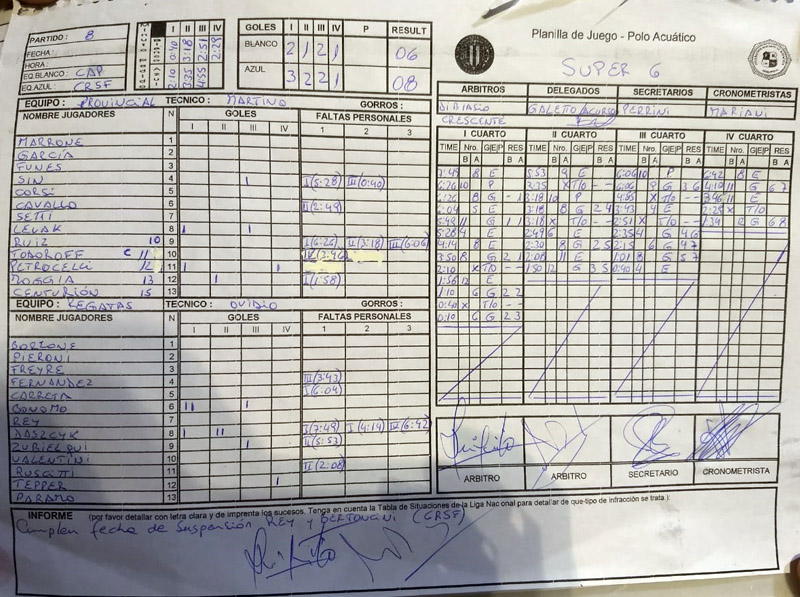 PARTIDO : 8
FECHA :
HORA :
EQ.BLANCO : CAP
EQ.AZUL : CRSF
I II III IV
0:40 3:18 2:51 2:29
2:10 3:35 4:55
GOLES I II III IV P RESULT
BLANCO 2 1 2 1 06
AZUL 3 2 2 1 08
Planilla de Juego - Polo Acuático
SUPER 6
ARBITROS DELEGADOS SECRETARIOS CRONOMETRISTAS
DIBIASIO GALETO PERRINI MARIANI
CRESCENTE
EQUIPO : PROVINCIAL TECNICO : MARTINO GORROS :
NOMBRE JUGADORES N GOLES FALTAS PERSONALES
I II III IV 1 2 3
MARRONE 1
GARCÍA 2
FUNES 3
SIN 4 I(5:28) III(0:40)
CORSI 5
CAVALLO 6 II(2:49)
SETTI 7
LEVAK 8
RUIZ 10 9 I(6:26) II(3:18) III(6:06)
TODOROFF C 11 10
PETROCELLI 12 11
MOGGIA 13 12 I(1:58)
CENTURIÓN 15 13
EQUIPO : REGATAS TECNICO : OVIDIO GORROS :
NOMBRE JUGADORES N GOLES FALTAS PERSONALES
I II III IV 1 2 3
BORZONE 1
PIERONI 2
FREYRE 3
FERNANDEZ 4 III(3:43)
CARRETA 5 I(6:04)
BONOMO 6
REY 7
DASZCYK 8 I(7:49) I(4:14) IV(6:42)
ZUBIELQUI 9 II(5:53)
VALENTINI 10
RUSCITTI 11 II(2:08)
TEPPER 12
PARAMO 13
I CUARTO II CUARTO III CUARTO IV CUARTO
TIME Nro. G|E|P RES TIME Nro. G|E|P RES TIME Nro. G|E|P RES TIME Nro. G|E|P RES
B A B A B A B A B A B A B A B A
7:49 8 E 5:53 9 E 6:06 10 P 6:42 8 E
6:26 10 P 3:35 X T/O - - 6:06 9 G 3 6 4:19 11 G 6 7
6:26 8 G - 1 3:18 10 P 4:55 X T/O - - 3:46 11 E
6:04 5 E 3:18 8 G 2 4 3:43 4 E 2:29 X T/O
5:48 11 G 1 1 2:49 6 E 2:51 X T/O - - 1:34 12 G 6 8
5:28 4 E 2:30 8 G 2 5 2:35 4 G 4 6
4:14 8 E 2:08 11 E 2:15 6 G 4 7
3:50 8 G 2 1 1:50 12 G 3 5 1:01 8 G 5 7
2:10 X T/O - - 0:40 4 E
1:58 12 E
1:10 6 G 2 2
0:40 X T/O - -
0:10 6 G 2 3
ARBITRO ARBITRO SECRETARIO CRONOMETRISTA
INFORME (por favor detallar con letra clara y de imprenta los sucesos. Tenga en cuenta la Tabla de Situaciones de la Liga Nacional para detallar de que tipo de infracción se trata.):
Cumplen fecha de suspensión REY y BERTONGNI (CRSF)